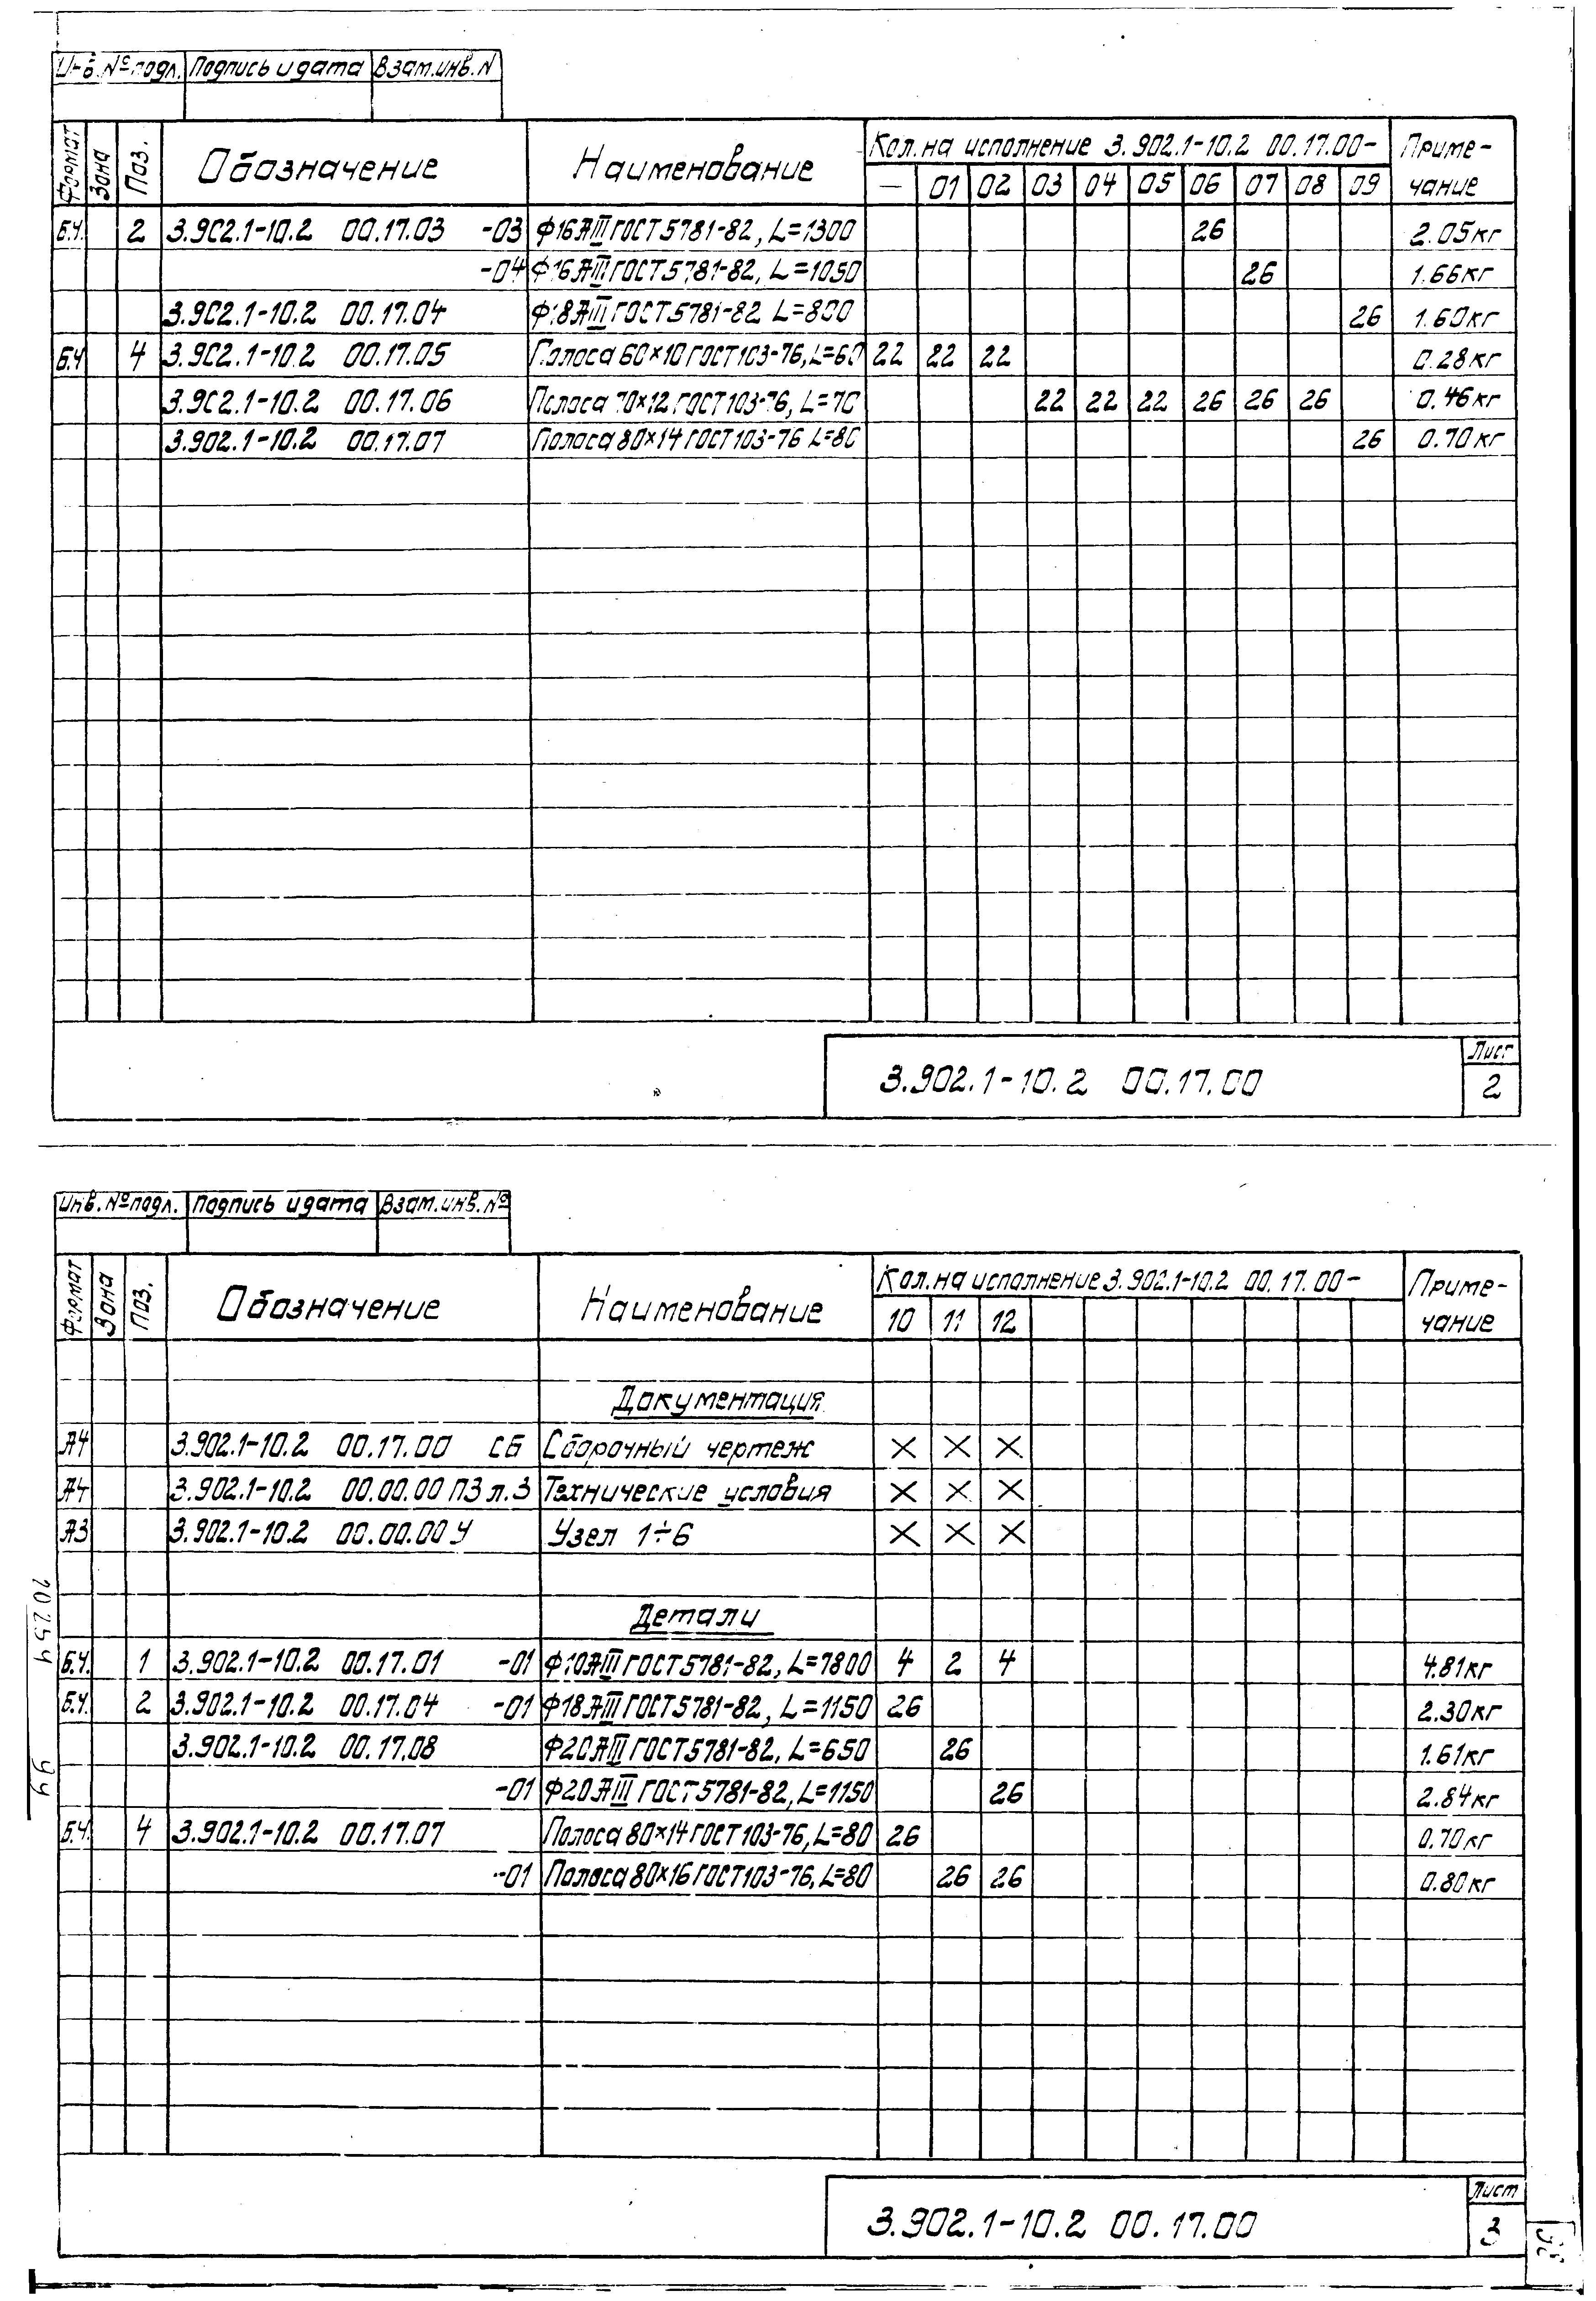 Инв. № подл. Подпись и дата Взам. инв. №
Формат Зона Поз. Обозначение Наименование Кол. на исполнение 3.902.1-10.2 00.17.00- Приме-
— 01 02 03 04 05 06 07 08 09 чание
Б.Ч. 2 3.902.1-10.2 00.17.03 -03 Ф16АIII ГОСТ 5781-82, L=1300 26 2.05кг
-04 Ф16АIII ГОСТ 5781-82, L=1050 26 1.66кг
3.902.1-10.2 00.17.04 Ф18АIII ГОСТ 5781-82 L=800 26 1.60кг
Б.Ч 4 3.902.1-10.2 00.17.05 Полоса 60×10 ГОСТ 103-76, L=60 22 22 22 0.28кг
3.902.1-10.2 00.17.06 Полоса 70×12 ГОСТ 103-76, L=70 22 22 22 26 26 26 0.46кг
3.902.1-10.2 00.17.07 Полоса 80×14 ГОСТ 103-76 L=80 26 0.70кг
3.902.1-10.2 00.17.00
Лист
2
Инв. № подл. Подпись и дата Взам. инв. №
Формат Зона Поз. Обозначение Наименование Кол. на исполнение 3.902.1-10.2 00.17.00- Приме-
10 11 12 чание
Документация
А4 3.902.1-10.2 00.17.00 СБ Сборочный чертеж × × ×
А4 3.902.1-10.2 00.00.00 ПЗ л.3 Технические условия × × ×
А3 3.902.1-10.2 00.00.00 У Узел 1÷6 × × ×
Детали
Б.Ч. 1 3.902.1-10.2 00.17.01 -01 Ф10АIII ГОСТ 5781-82, L=7800 4 2 4 4.81кг
Б.Ч. 2 3.902.1-10.2 00.17.04 -01 Ф18АIII ГОСТ 5781-82, L=1150 26 2.30кг
3.902.1-10.2 00.17.08 Ф20АIII ГОСТ 5781-82, L=650 26 1.61кг
-01 Ф20АIII ГОСТ 5781-82, L=1150 26 2.84кг
Б.Ч. 4 3.902.1-10.2 00.17.07 Полоса 80×14 ГОСТ 103-76, L=80 26 0.70кг
-01 Полоса 80×16 ГОСТ 103-76, L=80 26 26 0.80кг
3.902.1-10.2 00.17.00
Лист
3